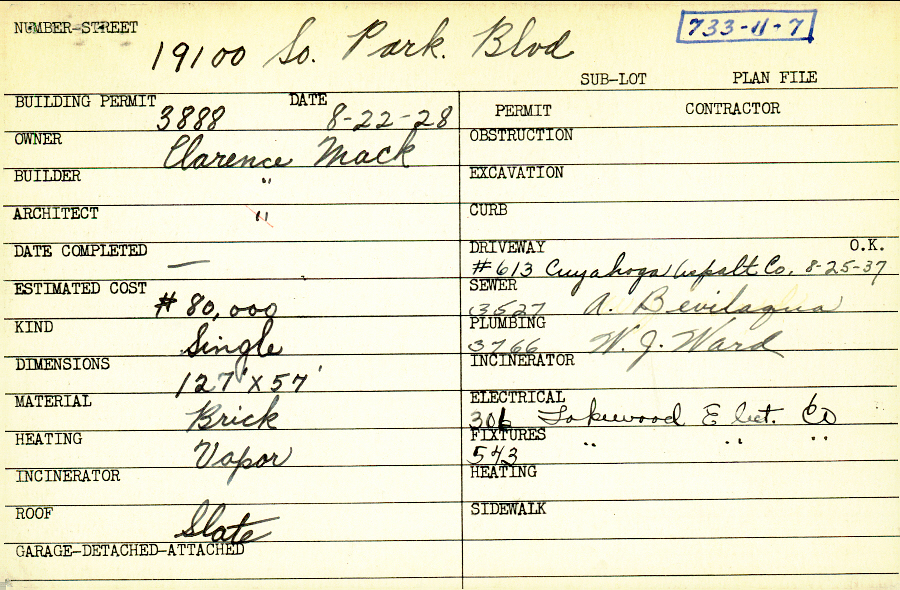 NUMBER-STREET
19100 So. Park. Blvd
733-11-7
SUB-LOT PLAN FILE
BUILDING PERMIT 3888 DATE 8-22-28
OWNER Clarence Mack
BUILDER "
ARCHITECT "
DATE COMPLETED —
ESTIMATED COST # 80,000
KIND Single
DIMENSIONS 127' X 57'
MATERIAL Brick
HEATING Vapor
INCINERATOR
ROOF Slate
GARAGE-DETACHED-ATTACHED
PERMIT CONTRACTOR
OBSTRUCTION
EXCAVATION
CURB
DRIVEWAY O.K.
#613 Cuyahoga Aspalt Co. 8-25-37
SEWER
3527 A. Bevilaqua
PLUMBING
3766 W. J. Ward
INCINERATOR
ELECTRICAL
306 Lakewood Elect. Co
FIXTURES " " "
543
HEATING
SIDEWALK